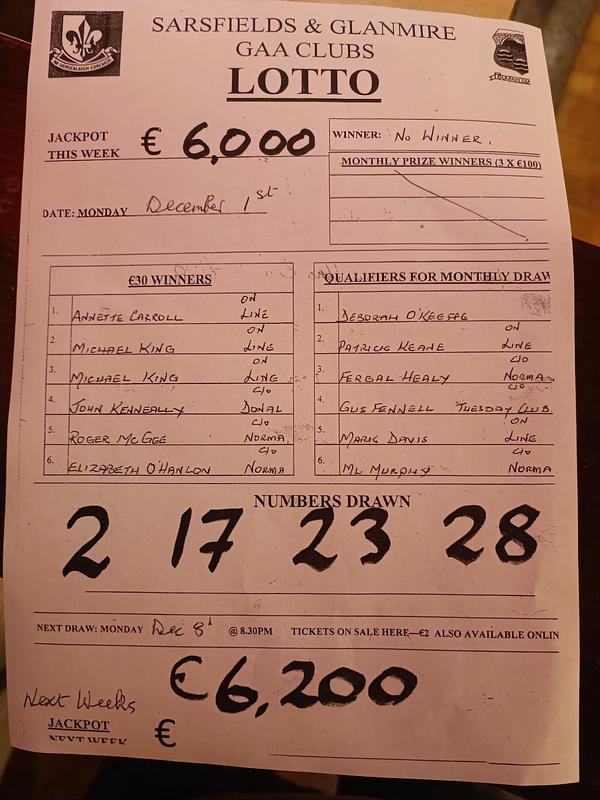 SARSFIELDS & GLANMIRE
GAA CLUBS
LOTTO
JACKPOT
THIS WEEK € 6,000
WINNER: No WINNER.
MONTHLY PRIZE WINNERS (3 X €100)
DATE: MONDAY December 1st
€30 WINNERS
1. ANNETTE CARROLL ON LINE
2. MICHAEL KING ON LINE
3. MICHAEL KING ON LINE
4. JOHN KENNEALLY C/o DONAL
5. ROGER McGEE C/o NORMA
6. ELIZABETH O'HANLON C/o NORMA
QUALIFIERS FOR MONTHLY DRAW
1. DEBORAH O'KEEFFE
2. PATRICK KEANE ON LINE
3. FERGAL HEALY C/o NORMA
4. GUS FENNELL C/o TUESDAY CLUB
5. MARK DAVIS ON LINE
6. ML MURPHY C/o NORMA
NUMBERS DRAWN
2 17 23 28
NEXT DRAW: MONDAY Dec 8' @ 8.30PM TICKETS ON SALE HERE—€2 ALSO AVAILABLE ONLIN
€6,200
Next Weeks
JACKPOT
NEXT WEEK €